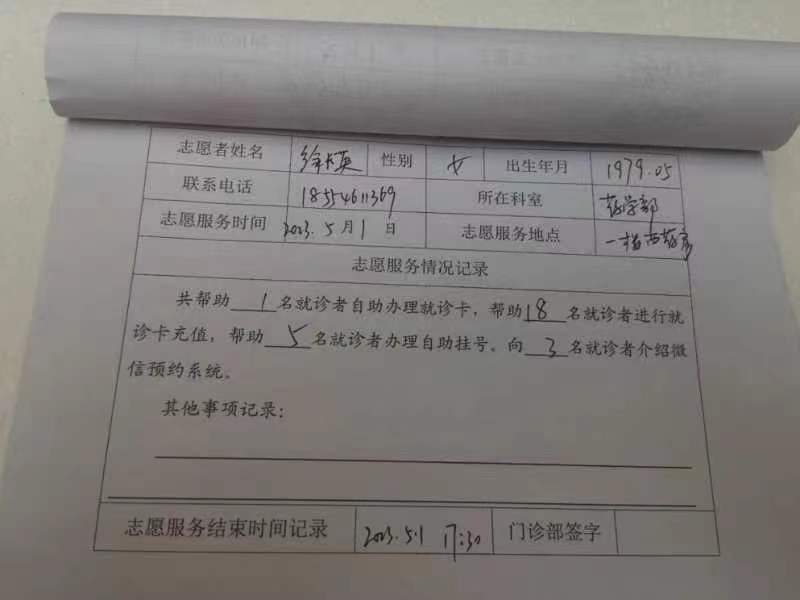 志愿者姓名 徐长英 性别 女 出生年月 1979.05
联系电话 18554611369 所在科室 药学部
志愿服务时间 2023.5月1日 志愿服务地点 一楼西药房
志愿服务情况记录
共帮助1名就诊者自助办理就诊卡，帮助18名就诊者进行就
诊卡充值，帮助5名就诊者办理自助挂号。向3名就诊者介绍微
信预约系统。
其他事项记录：
志愿服务结束时间记录 2023.5.1 17:30 门诊部签字